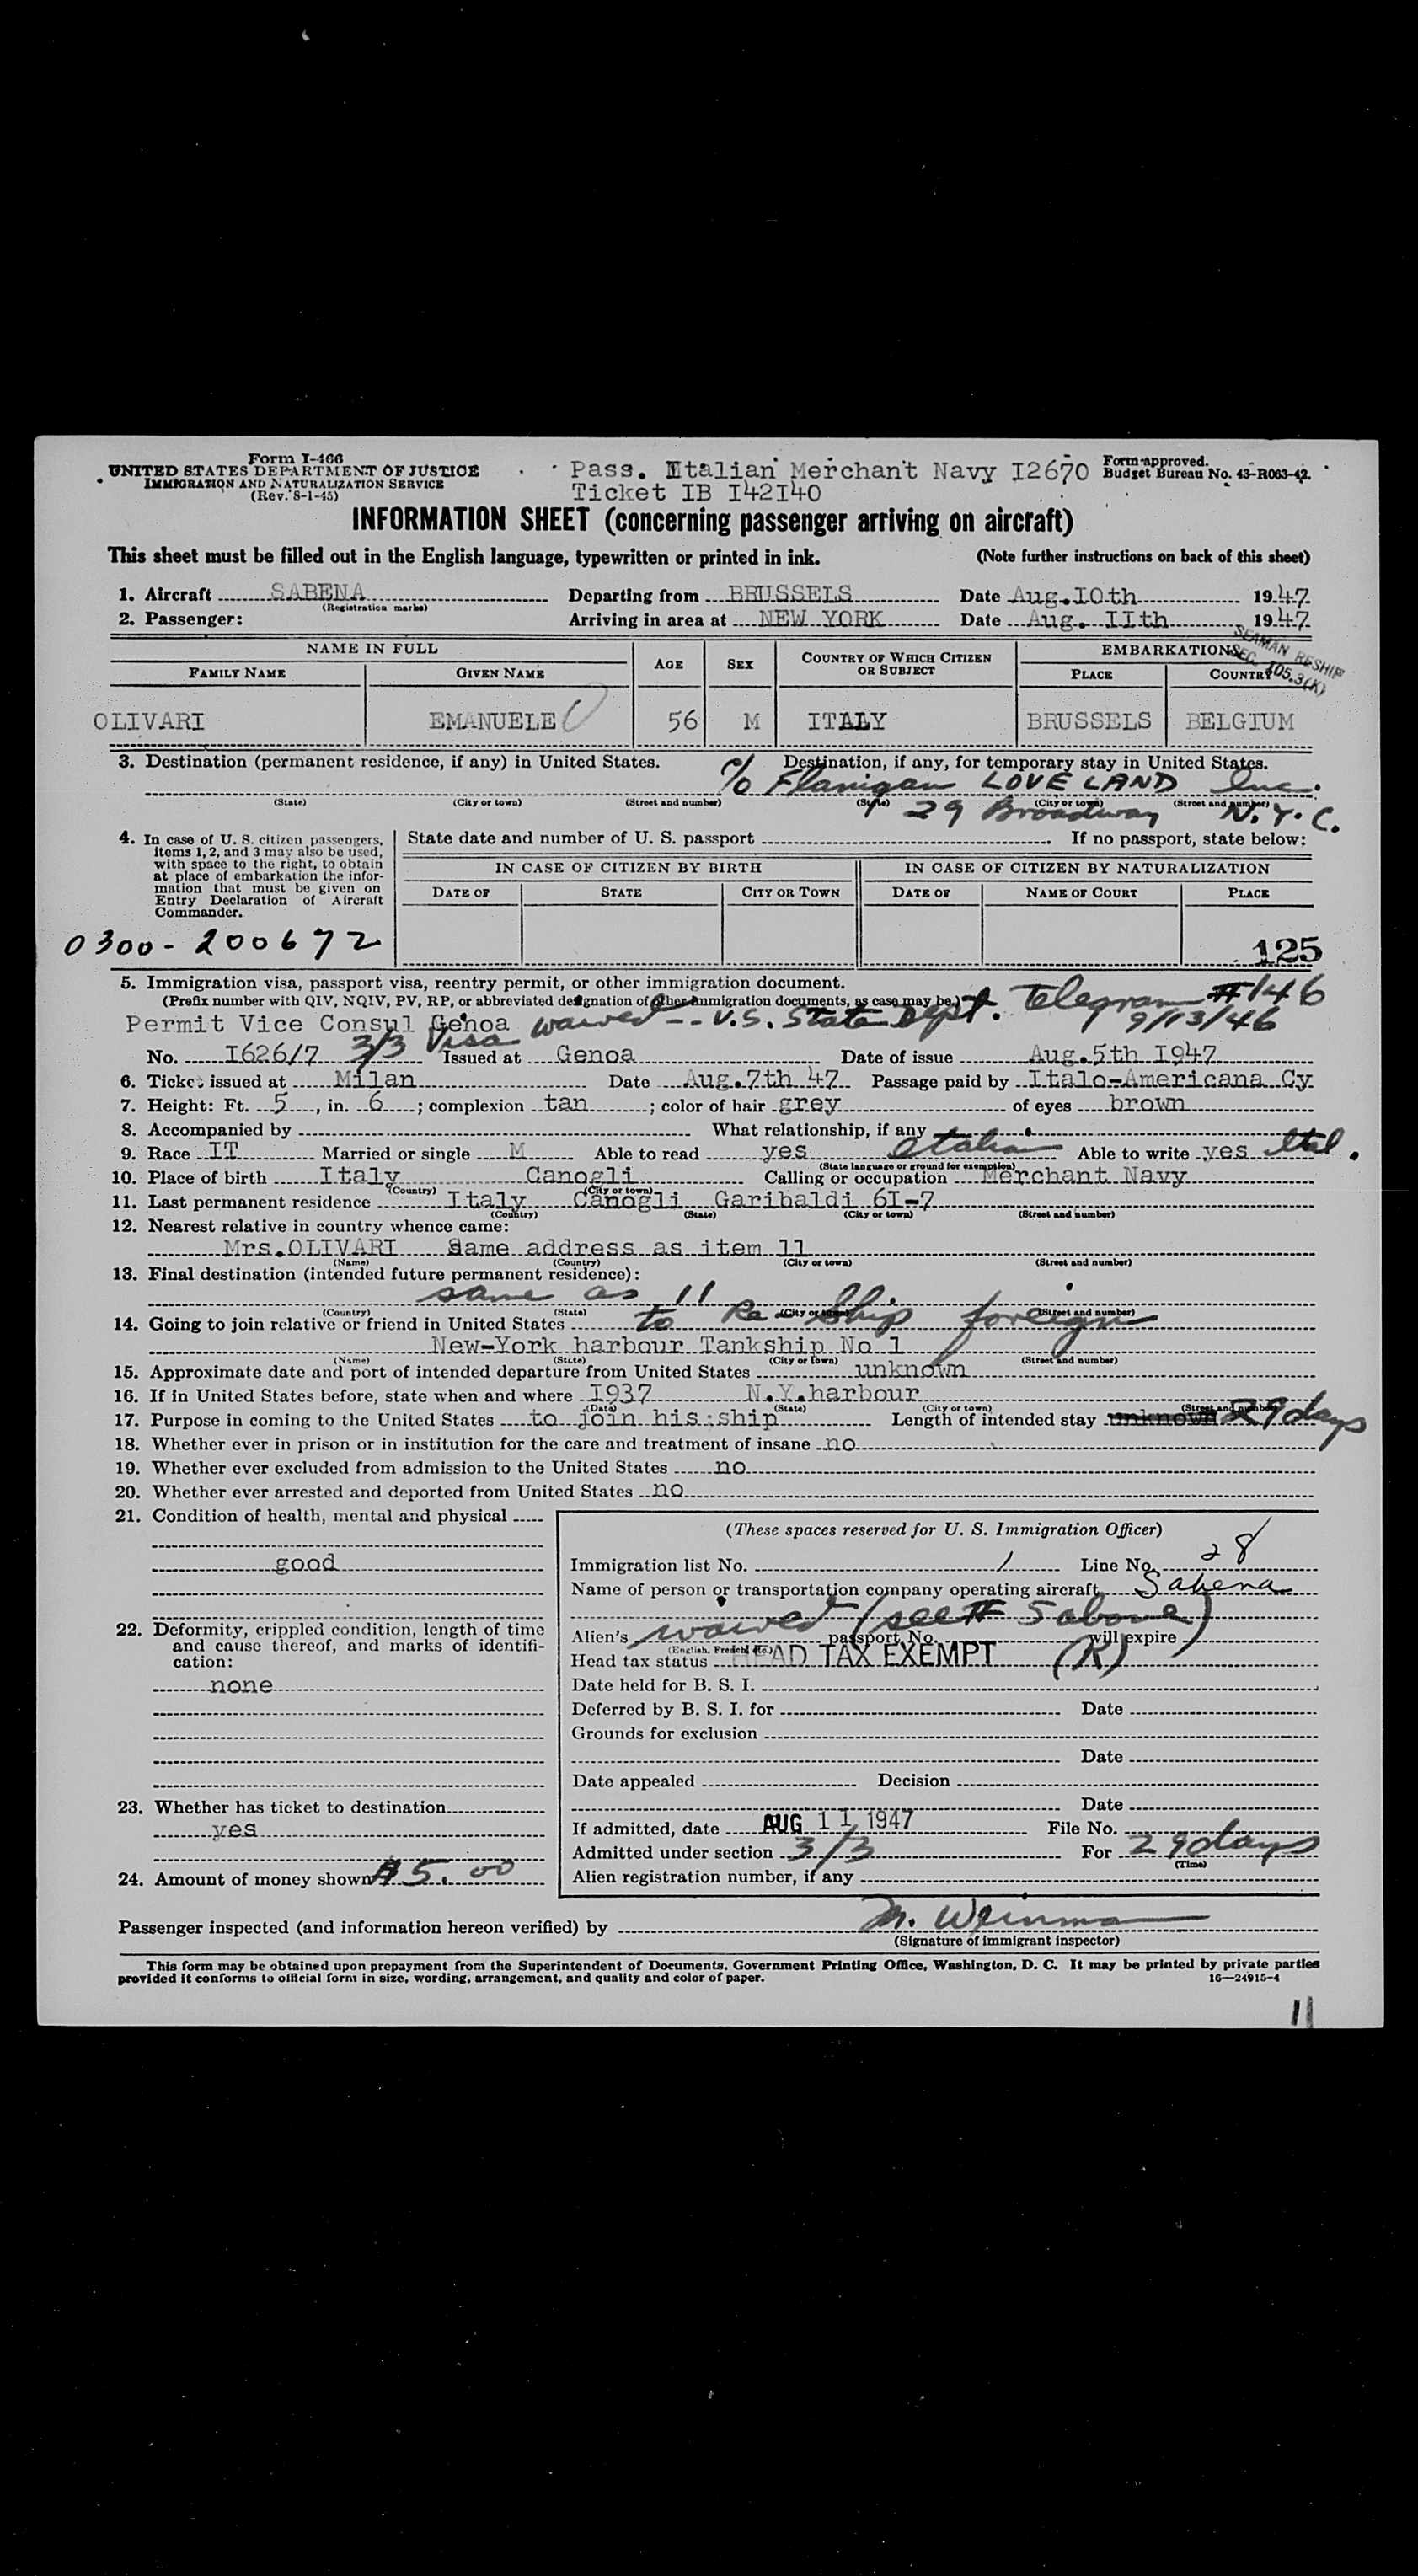 Form I-466
UNITED STATES DEPARTMENT OF JUSTICE
IMMIGRATION AND NATURALIZATION SERVICE
(Rev. 8-1-45)
Pass. Italian Merchant Navy I2670
Ticket IB I42I40
Form approved.
Budget Bureau No. 43-R063-42.
INFORMATION SHEET (concerning passenger arriving on aircraft)
This sheet must be filled out in the English language, typewritten or printed in ink. (Note further instructions on back of this sheet)
1. Aircraft SABENA Departing from BRUSSELS Date Aug.IOth 1947
(Registration marks)
2. Passenger: Arriving in area at NEW YORK Date Aug. IIth 1947
SEAMAN RESHIP
SEC. 105.3(K)
NAME IN FULL AGE SEX COUNTRY OF WHICH CITIZEN OR SUBJECT EMBARKATION
FAMILY NAME GIVEN NAME PLACE COUNTRY
OLIVARI EMANUELE 56 M ITALY BRUSSELS BELGIUM
3. Destination (permanent residence, if any) in United States. Destination, if any, for temporary stay in United States.
c/o Flanigan LOVELAND Inc.
(State) (City or town) (Street and number) (State) (City or town) (Street and number)
29 Broadway N.Y.C.
4. In case of U. S. citizen passengers, items 1, 2, and 3 may also be used, with space to the right, to obtain at place of embarkation the information that must be given on Entry Declaration of Aircraft Commander.
State date and number of U. S. passport If no passport, state below:
IN CASE OF CITIZEN BY BIRTH IN CASE OF CITIZEN BY NATURALIZATION
DATE OF STATE CITY OR TOWN DATE OF NAME OF COURT PLACE
0300-200672
125
5. Immigration visa, passport visa, reentry permit, or other immigration document.
(Prefix number with QIV, NQIV, PV, RP, or abbreviated designation of other immigration documents, as case may be.)
Permit Vice Consul Genoa waived -- U.S. State Dept. Telegram #146
9/13/46
3/3 Visa
No. I626/7 Issued at Genoa Date of issue Aug.5th I947
6. Ticket issued at Milan Date Aug.7th 47 Passage paid by Italo-Americana Cy
7. Height: Ft. 5, in. 6; complexion tan; color of hair grey of eyes brown
8. Accompanied by What relationship, if any
9. Race IT Married or single M Able to read yes Italian Able to write yes Ital.
(State language or ground for exemption)
10. Place of birth Italy Canogli Calling or occupation Merchant Navy
(Country) (City or town)
11. Last permanent residence Italy Canogli Garibaldi 6I-7
(Country) (State) (City or town) (Street and number)
12. Nearest relative in country whence came:
Mrs.OLIVARI Same address as item 11
(Name) (Country) (City or town) (Street and number)
13. Final destination (intended future permanent residence):
same as 11
(Country) (State) (City or town) (Street and number)
14. Going to join relative or friend in United States to Re-Ship foreign
New-York harbour Tankship No 1
(Name) (State) (City or town) (Street and number)
15. Approximate date and port of intended departure from United States unknown
16. If in United States before, state when and where I937 N.Y.harbour
(Date) (State) (City or town) (Street and number)
17. Purpose in coming to the United States to join his ship Length of intended stay unknown 29 days
18. Whether ever in prison or in institution for the care and treatment of insane no
19. Whether ever excluded from admission to the United States no
20. Whether ever arrested and deported from United States no
21. Condition of health, mental and physical
good
22. Deformity, crippled condition, length of time and cause thereof, and marks of identification:
none
23. Whether has ticket to destination
yes
24. Amount of money shown $5.00
(These spaces reserved for U. S. Immigration Officer)
Immigration list No. 1 Line No. 28
Name of person or transportation company operating aircraft Sabena
waived (see # 5 above)
Alien's passport No. will expire
(English, French, etc.)
Head tax status HEAD TAX EXEMPT (K)
Date held for B. S. I.
Deferred by B. S. I. for Date
Grounds for exclusion
Date
Date appealed Decision
Date
If admitted, date AUG 11 1947 File No.
Admitted under section 3/3 For 29 days
(Time)
Alien registration number, if any
Passenger inspected (and information hereon verified) by M. Weinman
(Signature of Immigrant Inspector)
This form may be obtained upon prepayment from the Superintendent of Documents, Government Printing Office, Washington, D. C. It may be printed by private parties
provided it conforms to official form in size, wording, arrangement, and quality and color of paper.
16—24915-4
11